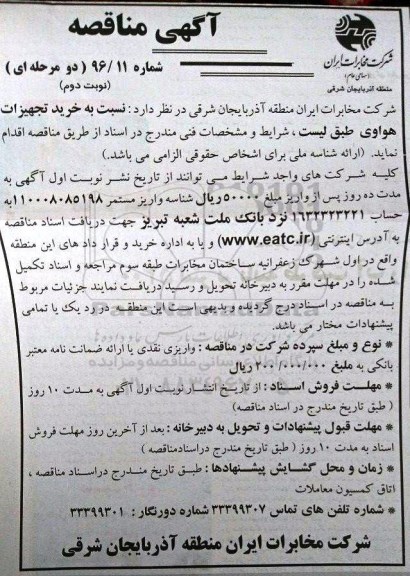 آگهی مناقصه
شرکت مخابرات ایران
(سهامی عام)
منطقه آذربایجان شرقی
شماره ۹۶/۱۱ ( دو مرحله ای )
(نوبت دوم)
شرکت مخابرات ایران منطقه آذربایجان شرقی در نظر دارد: نسبت به خرید تجهیزات
هواوی طبق لیست ، شرایط و مشخصات فنی مندرج در اسناد از طریق مناقصه اقدام
نماید. (ارائه شناسه ملی برای اشخاص حقوقی الزامی می باشد.)
کلیه شرکت های واجد شرایط می توانند از تاریخ نشر نوبت اول آگهی به
مدت ده روز پس از واریز مبلغ ۵۰۰۰۰۰ ریال شناسه واریز مستمر ۱۱۰۰۰۸۰۸۵۱۹۸ به
حساب ۱۶۳۲۳۲۳۲۲۱ نزد بانک ملت شعبه تبریز جهت دریافت اسناد مناقصه
به آدرس اینترنتی (www.eatc.ir) و یا به اداره خرید و قرار داد های این منطقه
واقع در اول شهرک زعفرانیه ساختمان مخابرات طبقه سوم مراجعه و اسناد تکمیل
شده را در مهلت مقرر به دبیرخانه تحویل و رسید دریافت نمایند جزئیات مربوط
به مناقصه در اسناد درج گردیده و بدیهی است این منطقه در رد یک یا تمامی
پیشنهادات مختار می باشد.
* نوع و مبلغ سپرده شرکت در مناقصه : واریزی نقدی یا ارائه ضمانت نامه معتبر
بانکی به مبلغ ۲۰۰/۰۰۰/۰۰۰ ریال
* مهلت فروش اسناد : از تاریخ انتشار نوبت اول آگهی به مدت ۱۰ روز
( طبق تاریخ مندرج در اسناد مناقصه)
* مهلت قبول پیشنهادات و تحویل به دبیرخانه : بعد از آخرین روز مهلت فروش
اسناد به مدت ۱۰ روز ( طبق تاریخ مندرج دراسنادمناقصه )
* زمان و محل گشایش پیشنهادها : طبق تاریخ مندرج دراسناد مناقصه ،
اتاق کمسیون معاملات
* شماره تلفن های تماس ۳۳۳۹۹۳۰۷ شماره دورنگار : ۳۳۳۹۹۳۰۱
شرکت مخابرات ایران منطقه آذربایجان شرقی